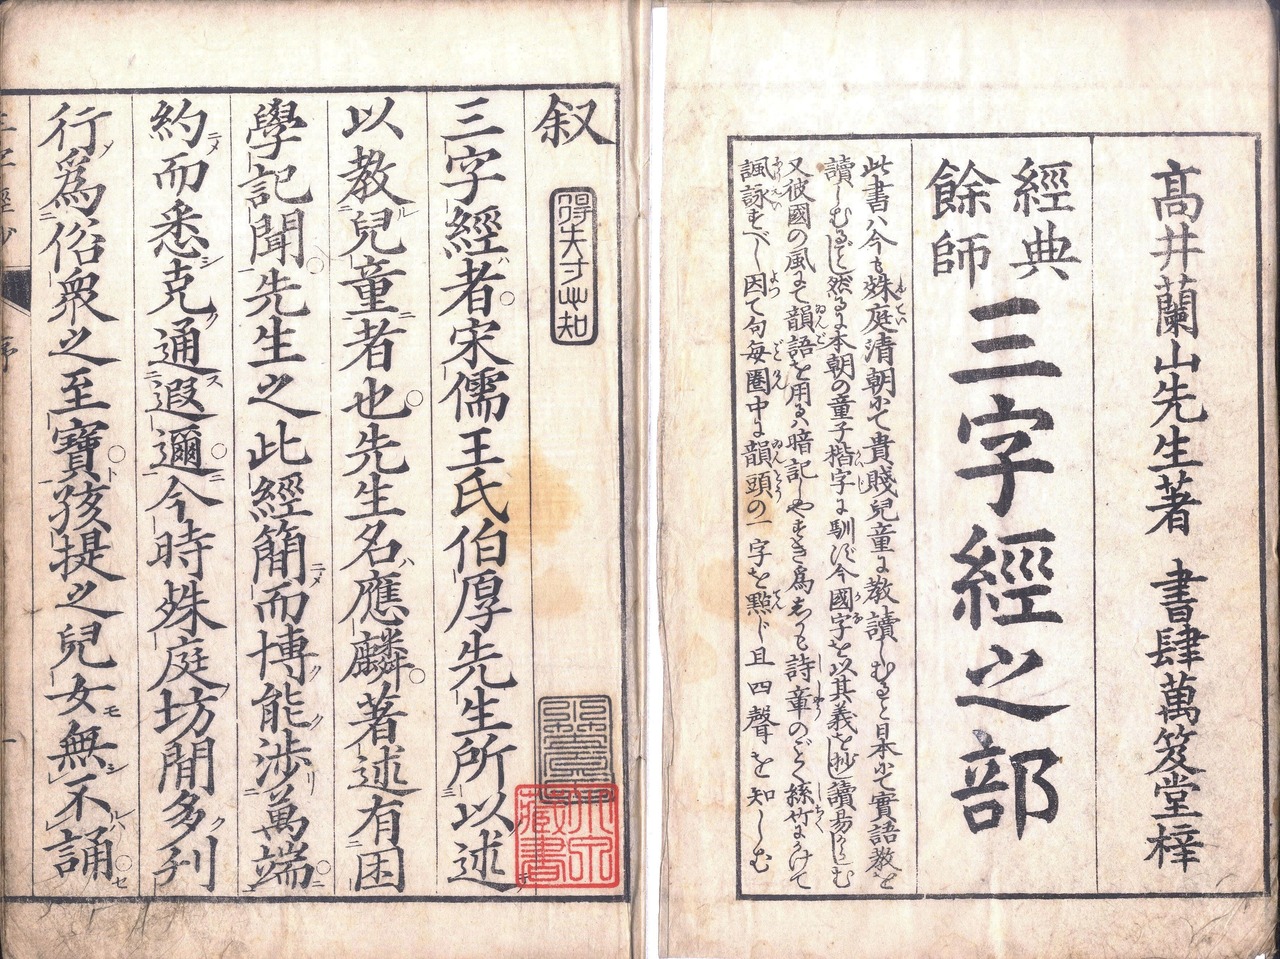 髙井蘭山先生著 書肆萬笈堂梓
經典
餘師
三字經之部
此書ハ今も姝庭清朝にて貴賤兒童に教讀しむると日本にて實語教を
讀しむるがごとし然るに本朝の童子楷字に馴ず今國字を以其義を抄讀易からしむ
又彼國の風にて韻語を用るハ暗記しやすき爲なれも詩章のごとく絲竹にかけて
諷詠すべし因て句毎圏中に韻頭の一字を點じ且四聲を知しむ
叙
得失寸心知
三字經者宋儒王氏伯厚先生所以述
以教兒童者也先生名應麟著述有困
學記聞先生之此經簡而博能渉萬端
約而悉克通遐邇今時姝庭坊間多刋
行爲俗衆之至寶孩提之兒女無不誦
藏書